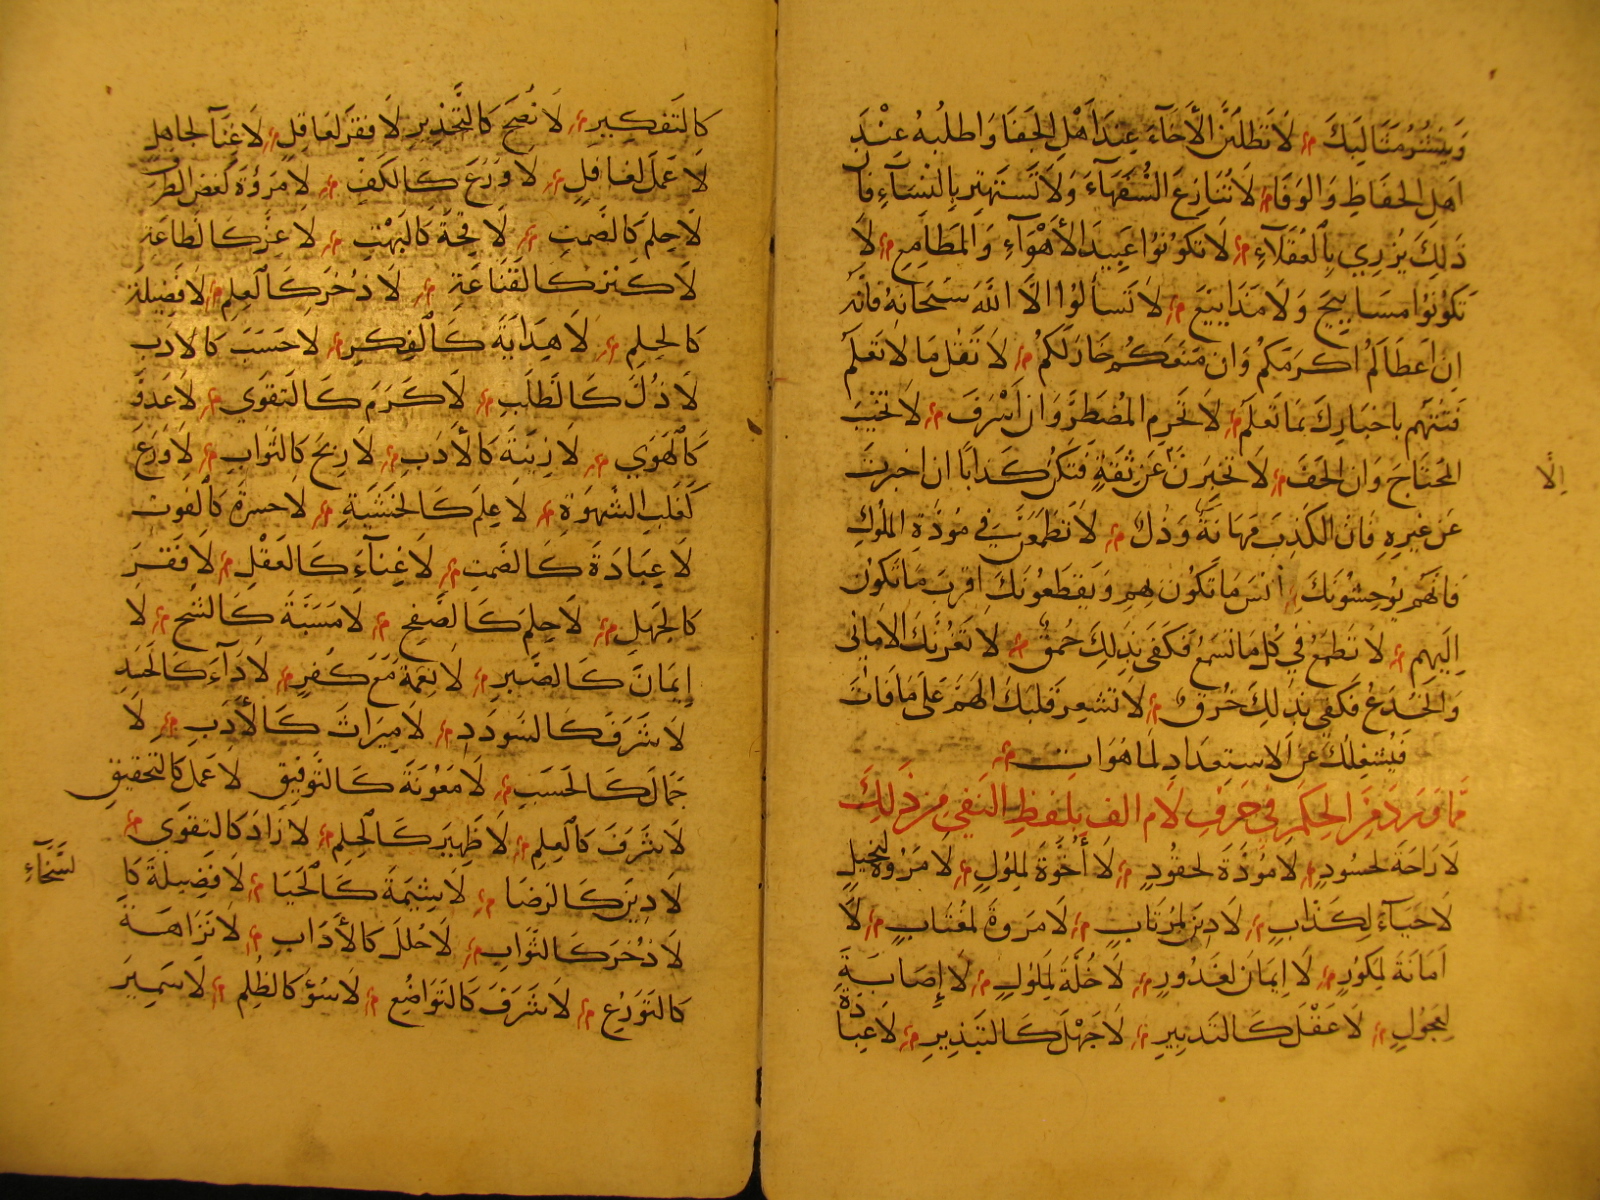 وينشر مثالبك لا تطلبن الأخاء عند أهل الجفا واطلبه عند
اهل الحفاظ والوفا لا تنازع السفهاء ولا تستهتر بالنساء فان
ذلك يزري بالعقلاء لا تكونوا عبيد الأهواء والمطامع لا
تكونوا مساييح ولا مذاييع لا تسألوا الا الله سبحانه فانه
ان اعطاكم اكرمكم وان منعكم خار لكم لا تقل ما لا تعلم
فتتهم باخبارك بما تعلم لا تحرم المضطر وان اسرف لا تخيب
المحتاج وان الحف لا تخبرن عن ثقة فتكن كذابا ان اخبرت
عن غيره فان الكذب مهانة وذل لا تطمعن في مودة الملوك
فانهم يوحشونك أنس ما تكون بهم ويقطعونك اقرب ما تكون
اليهم لا تطمع في كل ما تسمع فكفى بذلك حمق لا تغرنك الاماني
والخدع فكفى بذلك خرق لا تشعر قلبك الهم على ما فات
فيشغلك عن الاستعداد لما هو ات
مما ورد من الحكم في حرف لام الف بلفظ النفي من ذلك
لا راحة لحسود لا مودة لحقود لا أخوة لملول لا مروة لبخيل
لا حياء لكذاب لا دين لمرتاب لا مروة لمغتاب لا
امانة لمكور لا ايمان لغدور لا خلة لملول لا إصابة
لعجول لا عقل كالتدبير لا جهل كالتبذير لا عبادة
إلا
كالتفكير لا نصح كالتحذير لا فقر لعاقل لا غنآ لجاهل
لا عمل لغافل لا ورع كالكف لا مروة كغض الطرف
لا حلم كالصمت لا قحة كالبهت لا عز كالطاعة
لا كنز كالقناعة لا ذخر كالعلم لا فضيلة
كالحلم لا هداية كالفكر لا حسب كالادب
لا ذل كالطلب لا كرم كالتقوى لا عدو
كالهوي لا زينة كالأدب لا ربح كالثواب لا ورع
كغلب الشهوة لا علم كالخشية لا حسرة كالفوت
لا عبادة كالصمت لا غنآء كالعقل لا فقر
كالجهل لا حلم كالصفح لا مسبة كالشح لا
إيمان كالصبر لا نعمة مع كفر لا دآء كالحسد
لا شرف كالسودد لا ميراث كالأدب لا
جمال كالحسب لا معونة كالتوفيق لا عمل كالتحقيق
لا شرف كالعلم لا ظهير كالحلم لا زاد كالتقوى
لا دين كالرضا لا شيمة كالحيا لا فضيلة كا
لسخآء
لا ذخر كالثواب لا حلل كالأداب لا نزاهة
كالتورع لا شرف كالتواضع لا سؤ كالظلم لا سمير